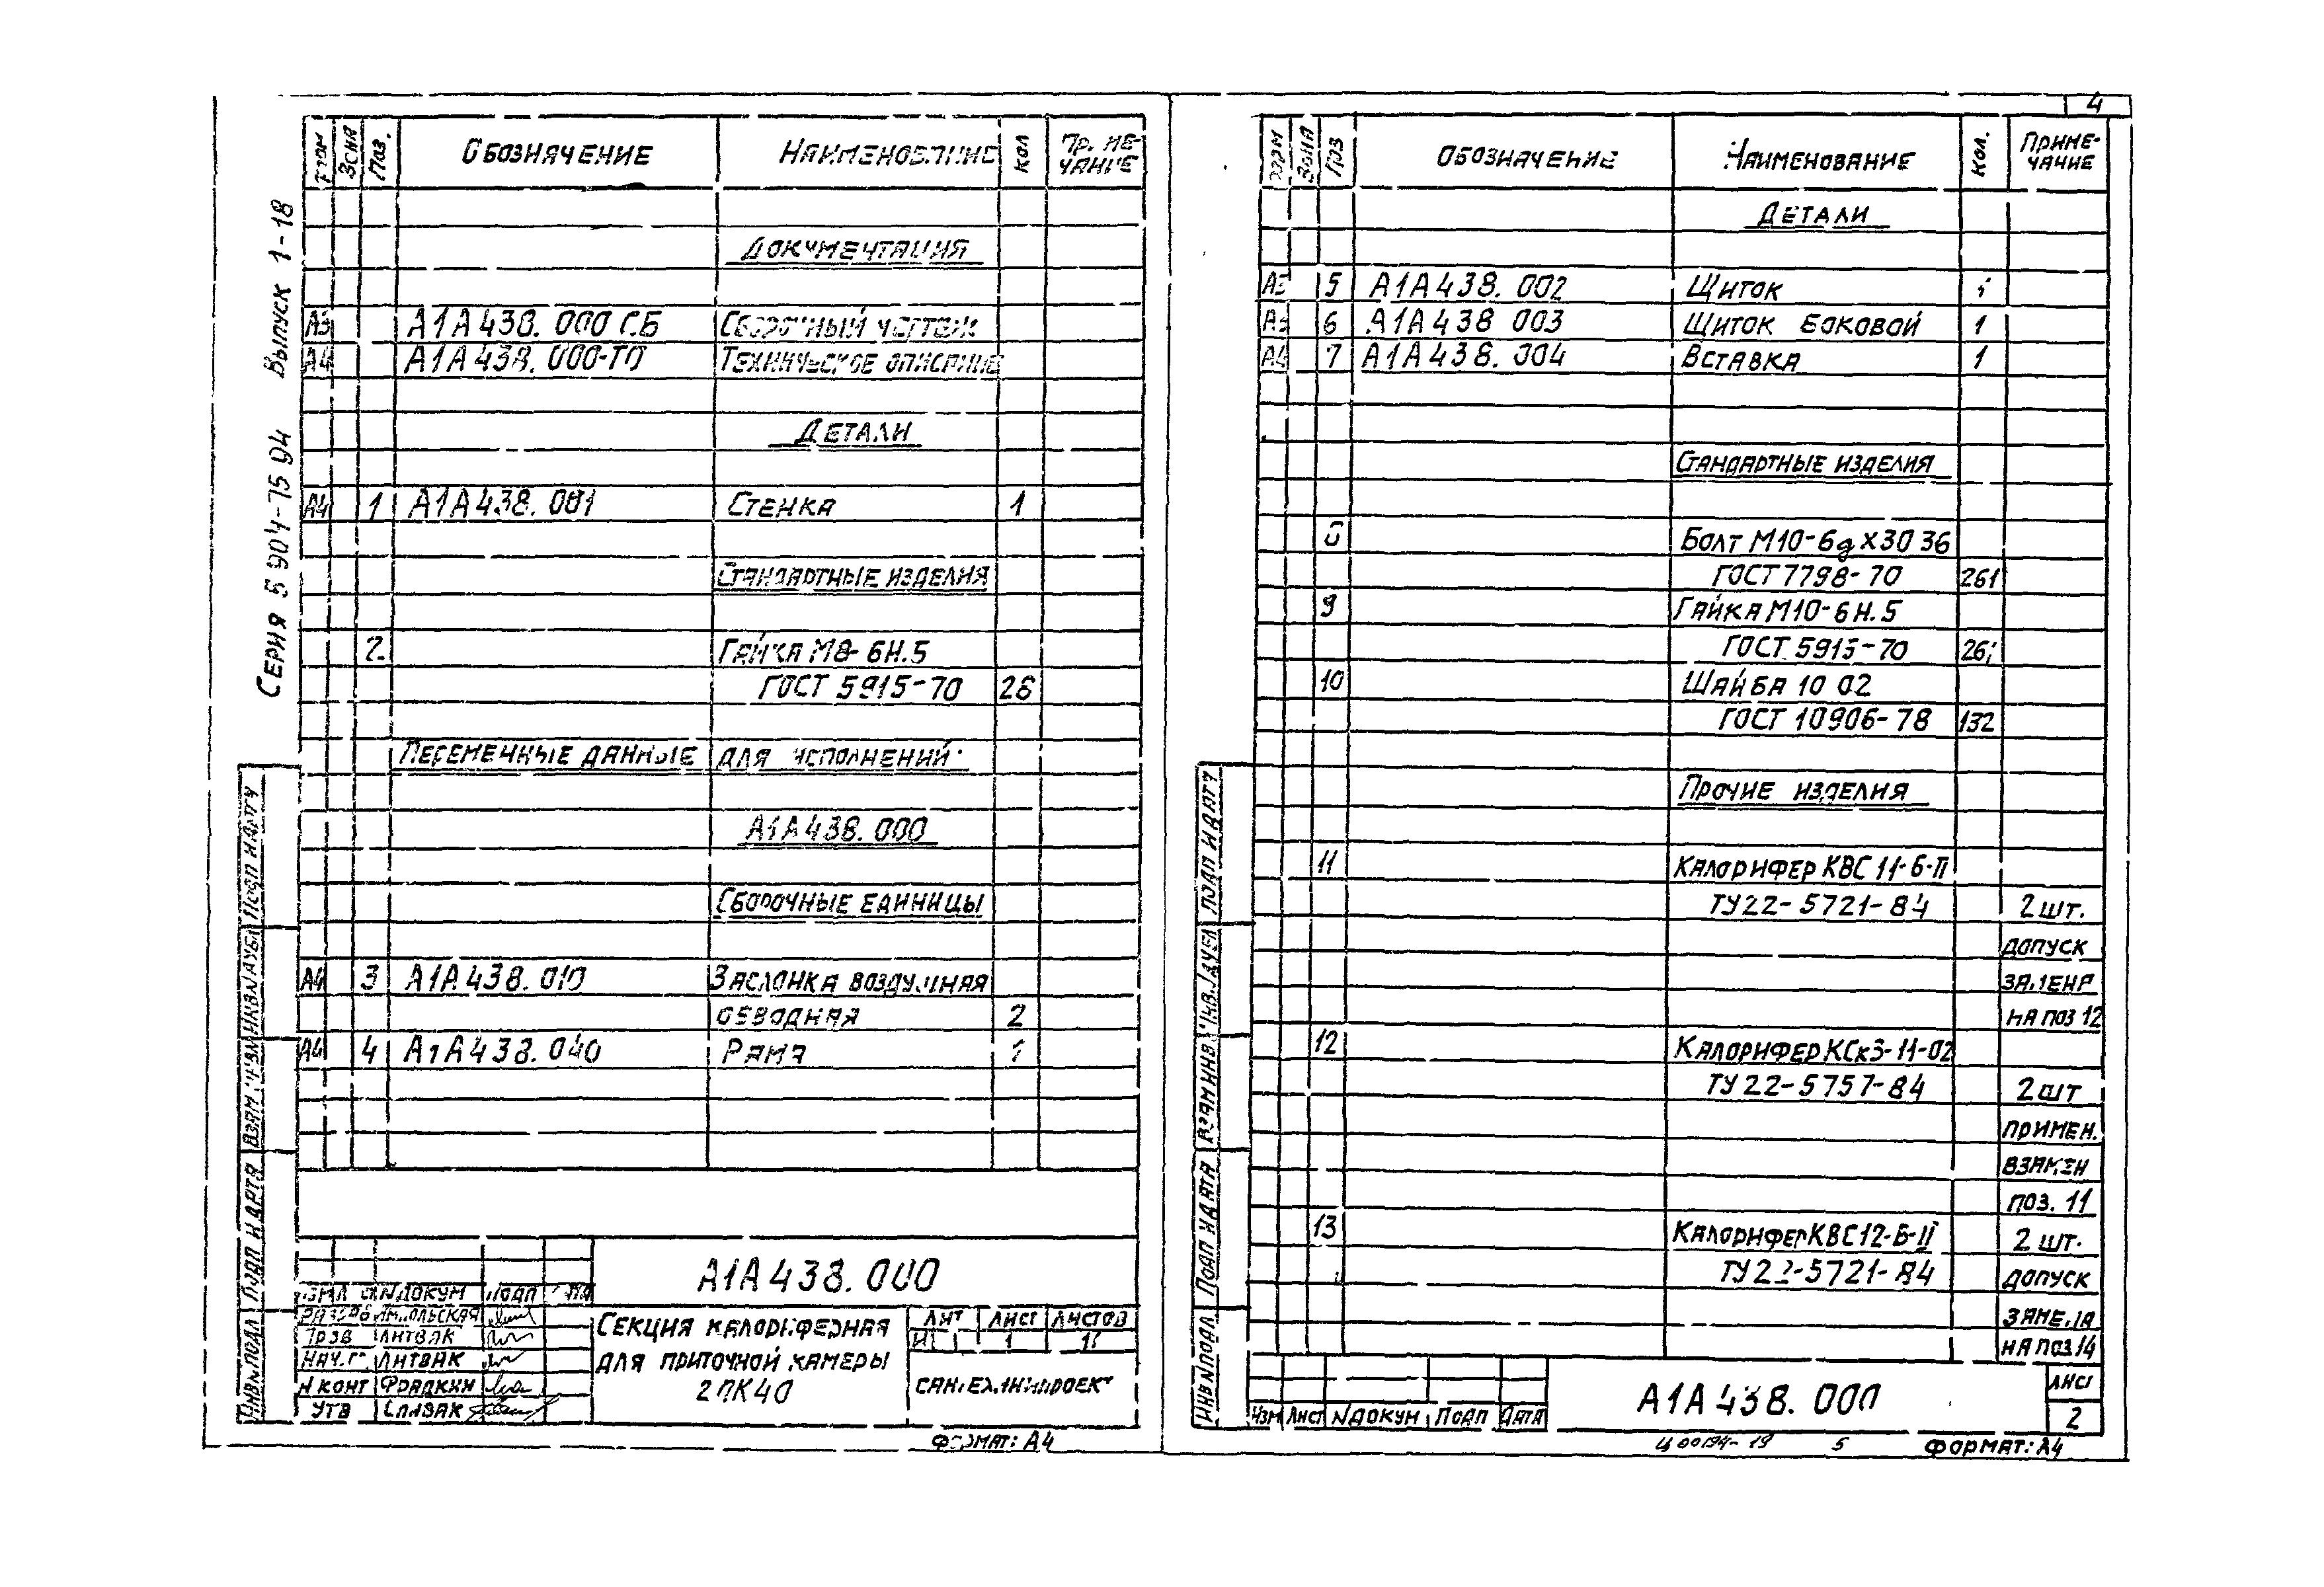 4
Серия 5 904-75 94 Выпуск 1-18
Зона Поз. Обозначение Наименование Кол Примечание
Документация
А3 А1А438. 000 СБ Сборочный чертеж
А4 А1А438. 000-ТО Техническое описание
Детали
А4 1 А1А438. 001 Стенка 1
Стандартные изделия
2 Гайка М8-6Н.5
ГОСТ 5915-70 26
Переменные данные для исполнений:
А1А438. 000
Сборочные единицы
А4 3 А1А438. 010 Заслонка воздушная
обводная 2
А4 4 А1А438. 040 Рама 1
А1А438. 000
Секция калориферная
для приточной камеры
2ПК40
Лит Лист Листов
И 1
Изм Л N докум Подп
Разраб
Пров Литвак
Нач. Литвак
Н конт Фрадкин
Утв Спивак
Инв N подл Подп и дата Взам. инв N Инв N дубл Подп и дату
Формат: А4
Форм Зона Поз Обозначение Наименование Кол. Примечание
Детали
5 А1А438. 002 Щиток
6 А1А438 003 Щиток боковой 1
А4 7 А1А438. 004 Вставка 1
Стандартные изделия
Болт М10-6gх30 36
ГОСТ 7798-70 261
9 Гайка М10-6Н.5
ГОСТ 5915-70
10 Шайба 10 02
ГОСТ 10906-78 132
Прочие изделия
11 Калорифер КВС 11-Б-II
ТУ22-5721-84 2 шт.
допуск
замена
на поз 12
12 Калорифер КСк3-11-02
ТУ22-5757-84 2 шт
примен.
взамен
поз. 11
13 Калорифер КВС12-Б-II 2 шт.
ТУ22-5721-84 допуск
замена
на поз 14
Инв N подл Подп и дата Взам инв N Инв. N дубл Подп и дату
Изм Лист N докум Подп Дата
А1А438. 000
Лист
2
Ц00194-19 5 Формат: А4